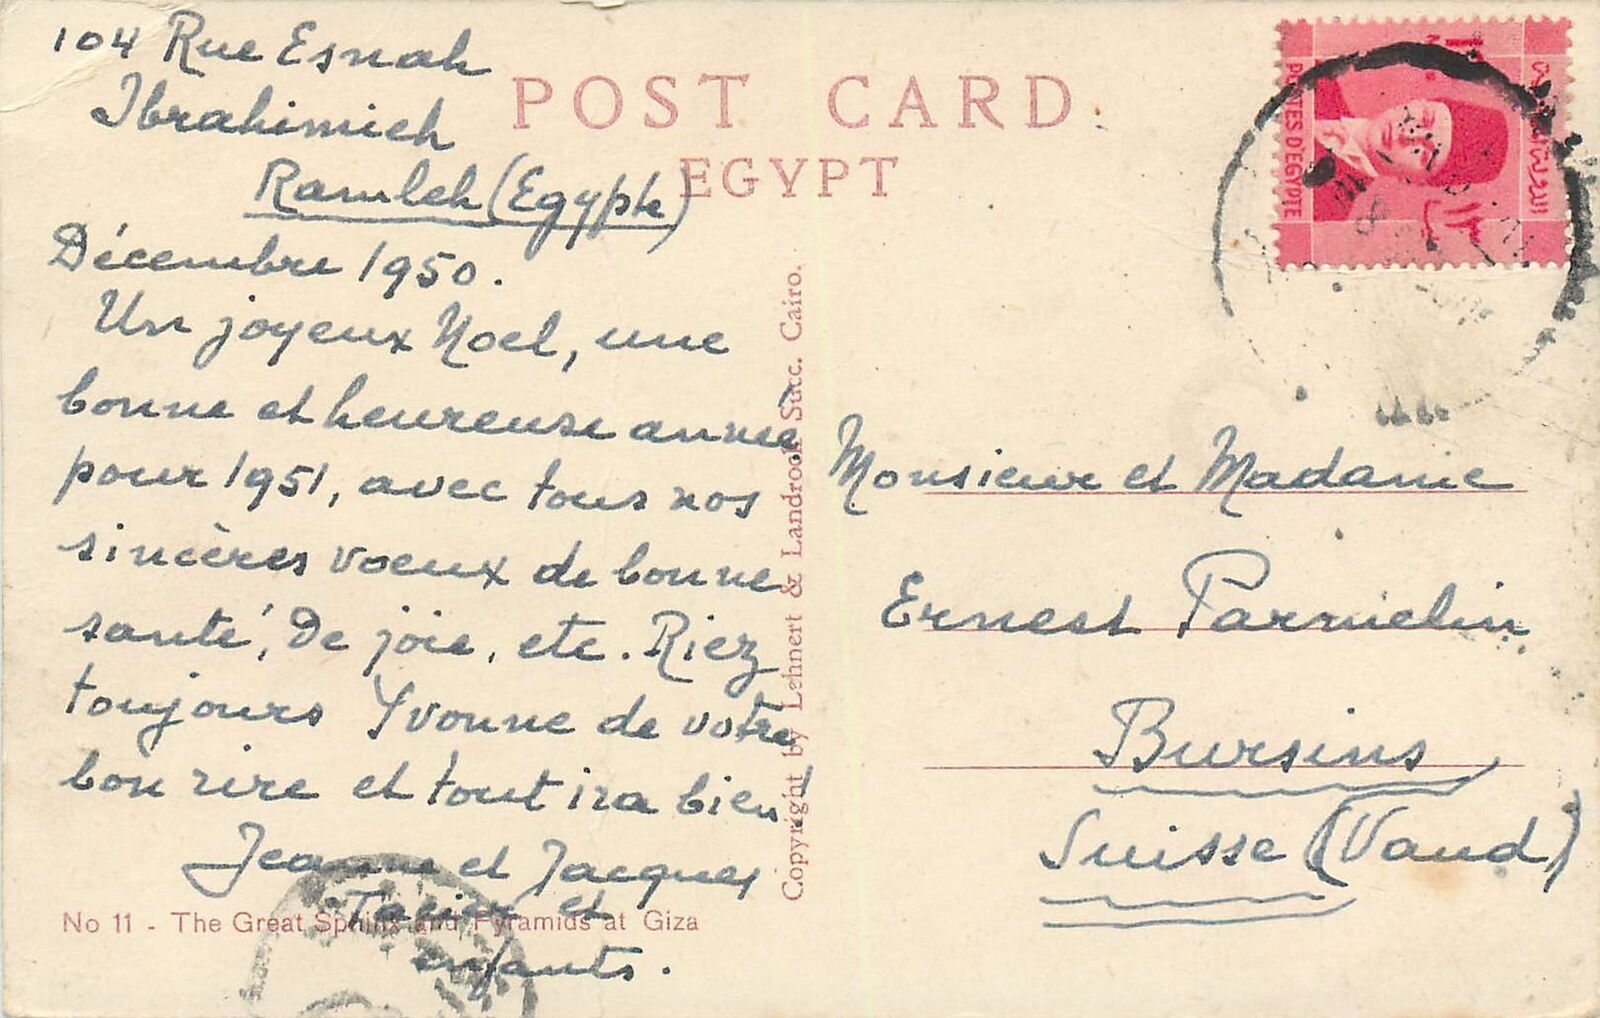 104 Rue Esnah
Ibrahimieh
Ramleh (Egypte)
Décembre 1950.
Un joyeux Noel, une
bonne et heureuse année
pour 1951, avec tous nos
sincères voeux de bonne
santé, de joie, etc. Riez
toujours Yvonne de votre
bon rire et tout ira bien!
Jeanne et Jacques
et
enfants.
No 11 - The Great Sphinx and Pyramids at Giza
POST CARD
EGYPT
Copyright by Lehnert & Landrock Succ. Cairo.
POSTES D'EGYPTE
Monsieur et Madame
Ernest Parmelin
Bursins
Suisse (Vaud)